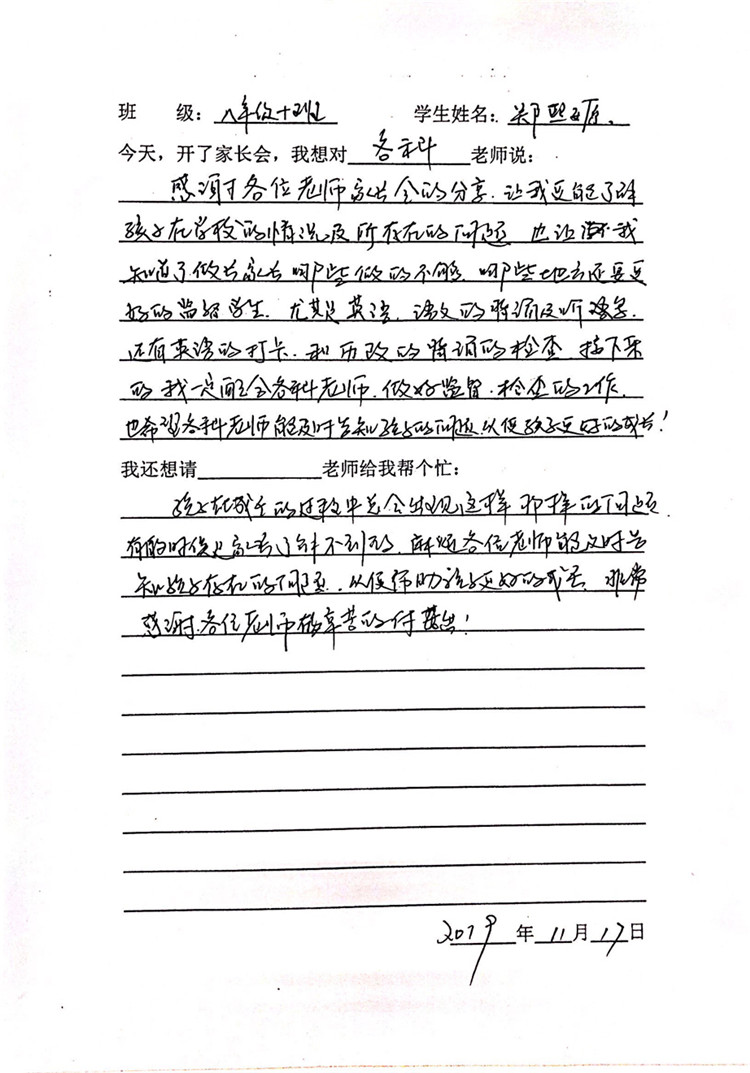 班 级：八年级十班 学生姓名：郑熙
今天，开了家长会，我想对 各科 老师说：
感谢于各位老师家长会的分享，让我更能了解
孩子在学校的情况及所存在的问题 也让我
知道了做为家长哪些做的不够，哪些地方还要更
好的监督学生，尤其是英语，语文的背诵及听写，
还有英语的打卡，和历政的背诵的检查，接下来
的我一定配合各科老师，做好监督，检查的工作，
也希望各科老师能及时告知孩子的问题，以便孩子更好的成长！
我还想请 老师给我帮个忙：
孩子在成长的过程中总会出现这样那样的问题，
有的时候是家长了解不到的，麻烦各位老师能及时告
知孩子存在的问题，以便帮助孩子更好的成长，非常
感谢各位老师辛苦的付出！
2019 年 11 月 17 日